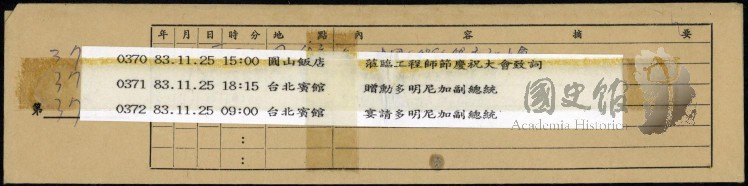 年 月 日 時 分 地 點 內 容 摘 要
37
0370 83.11.25 15:00 圓山飯店 蒞臨工程師節慶祝大會致詞
37
0371 83.11.25 18:15 台北賓館 贈勳多明尼加副總統
第 37
0372 83.11.25 09:00 台北賓館 宴請多明尼加副總統
:
:
國史館
Academia Historica